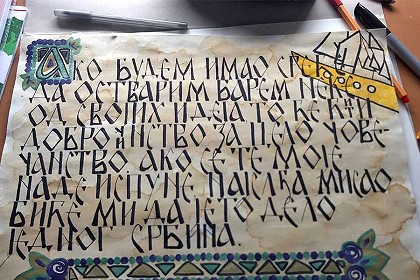 АКО БУДЕМ ИМАО
ДА ОСТВАРИМ БАРЕМ
ОД СВОЈИХ ИДЕЈА ТО ЋЕ
ДОБРОЧИНСТВО ЗА ЦЕЛО ЧОВЕ-
ЧАНСТВО АКО СЕ ТЕ МОЈЕ
НАДЕ ИСПУНЕ МИСАО
БИЋЕ МИ ДА ЈЕ ТО ДЕЛО
ЈЕДНОГ СРБИНА.